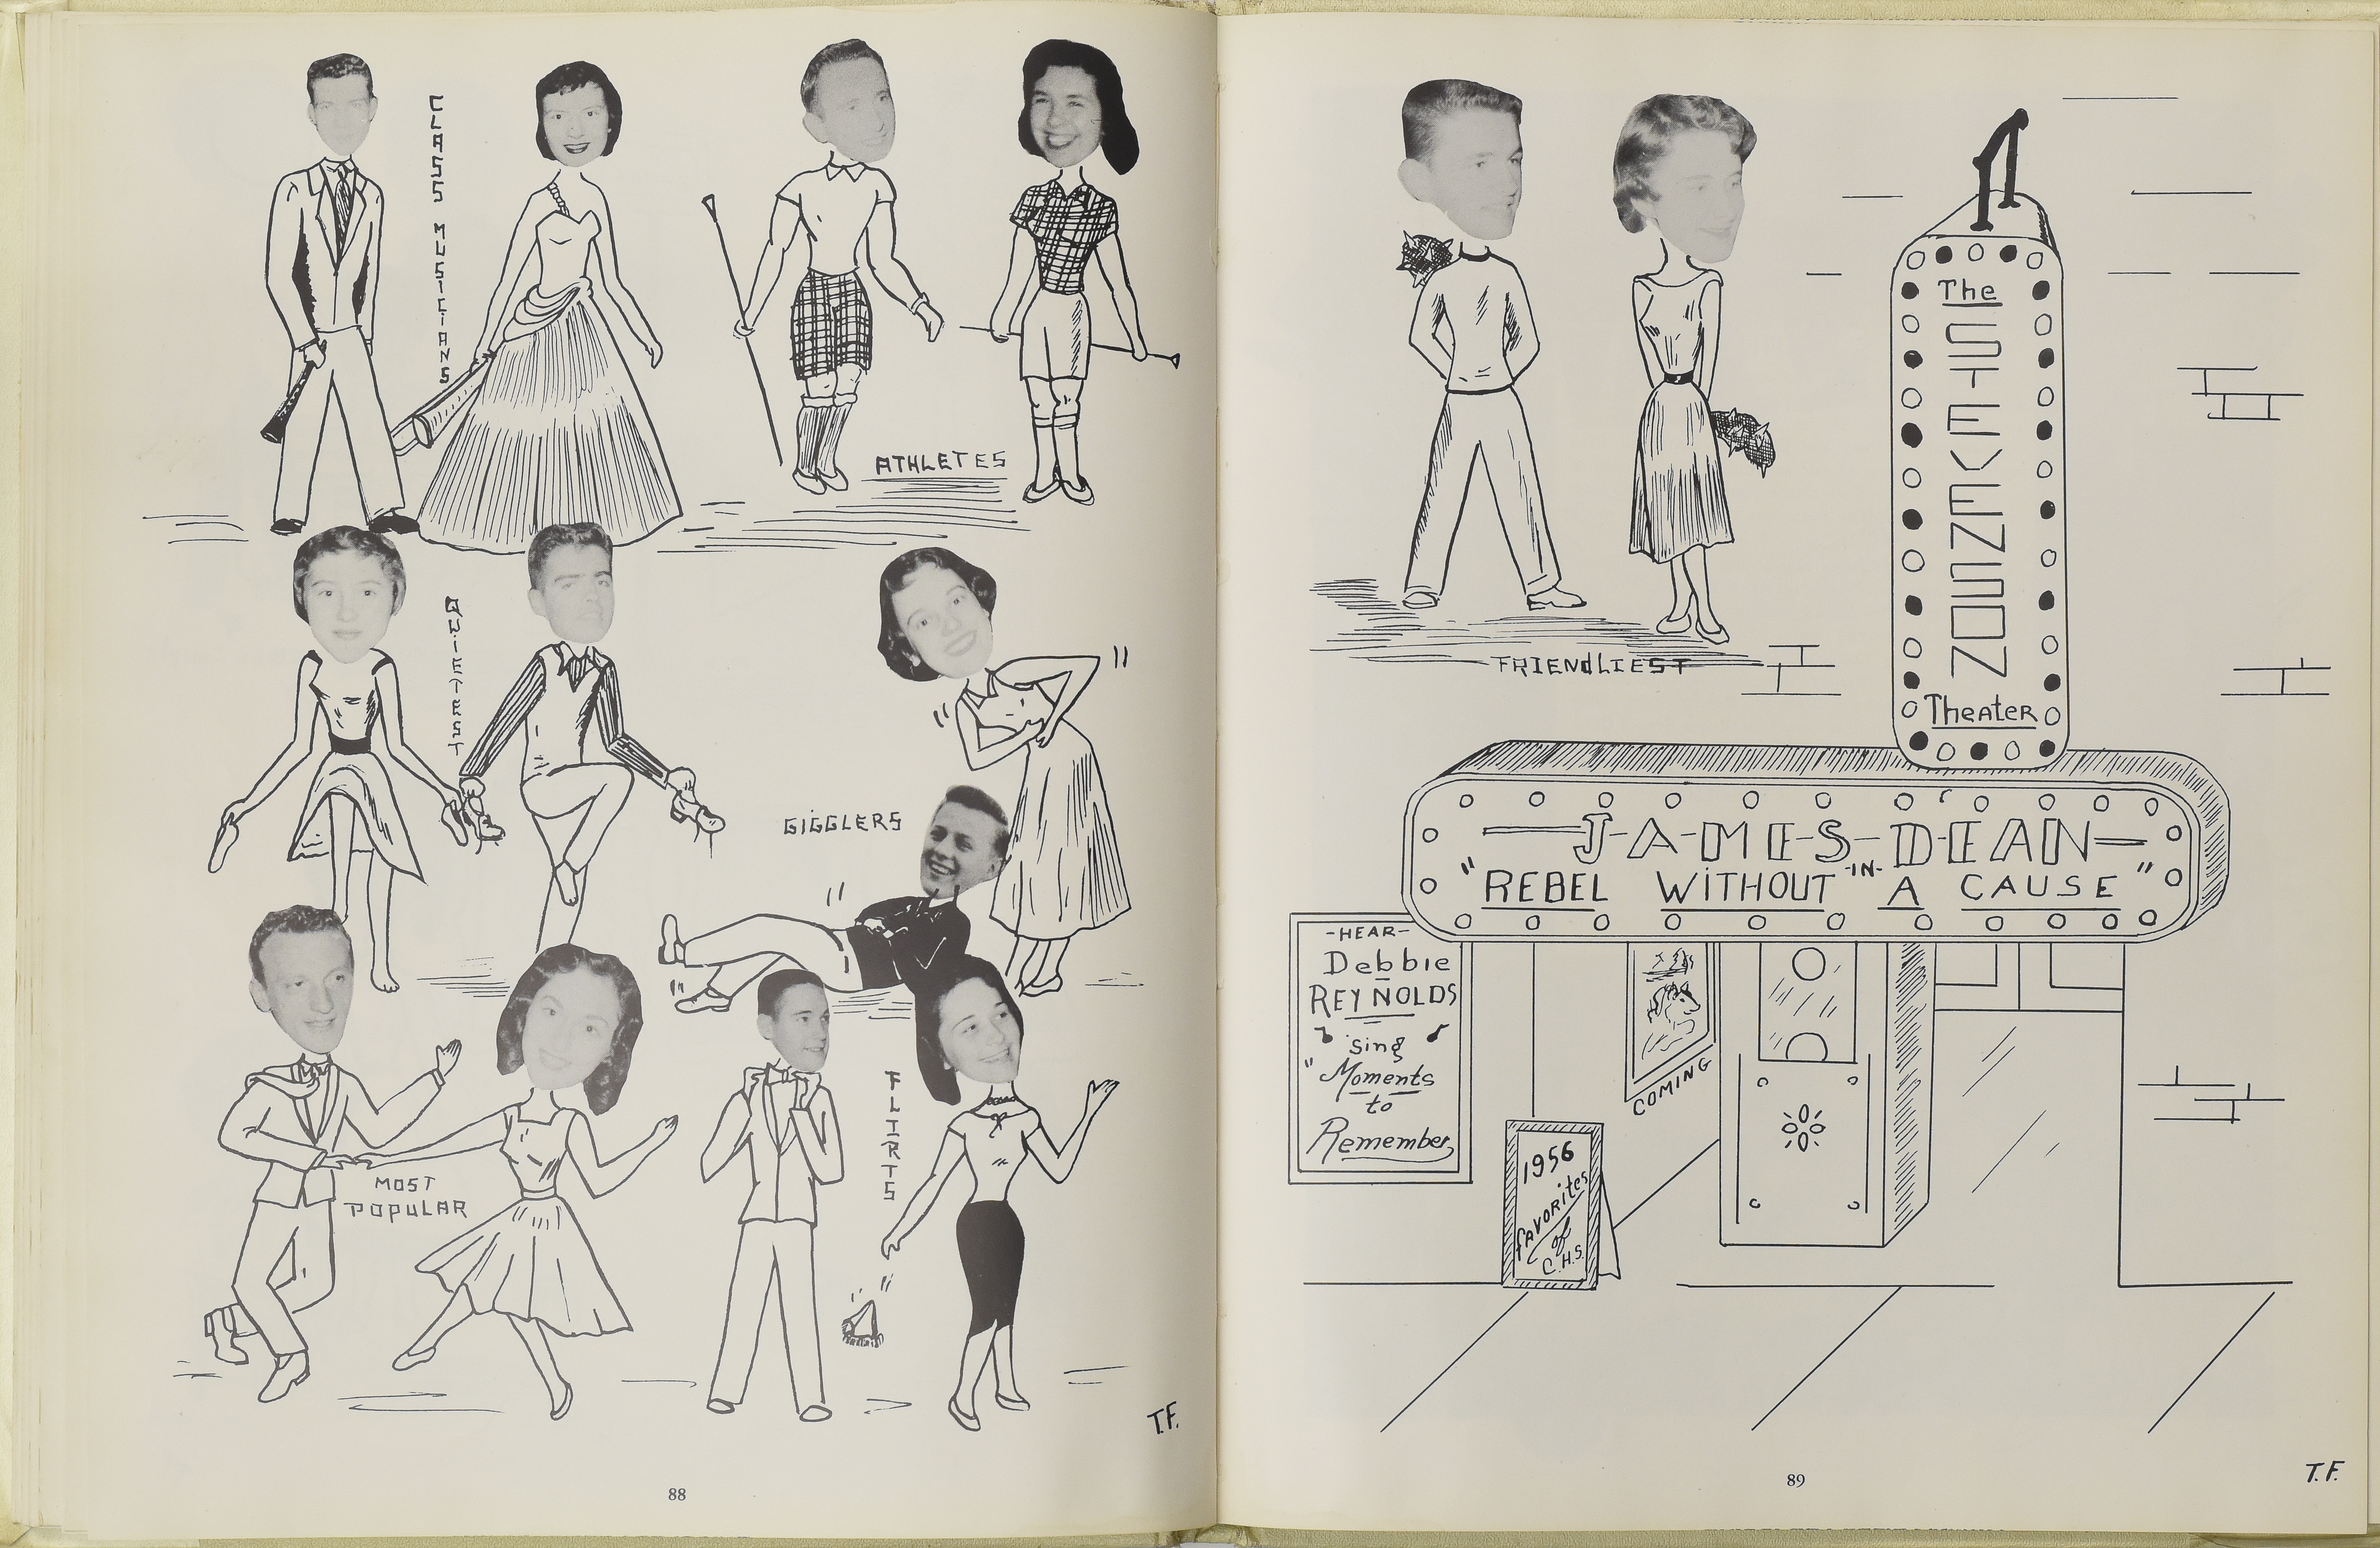 CLASS MUSiCiANS
ATHLETES
QUiETEST
GiGGLERS
MOST
POPULAR
FLIRTS
T.F.
88
FRIENdLIEST
The
STEVENSON
Theater
J-A-M-E-S-DEAN
-IN-
"REBEL WiTHOUT A CAUSE"
-HEAR-
Debbie
REYNOLDS
sing
"Moments
to
Remember"
COMING
1956
fAVORites
of
C.H.S.
89
T.F.